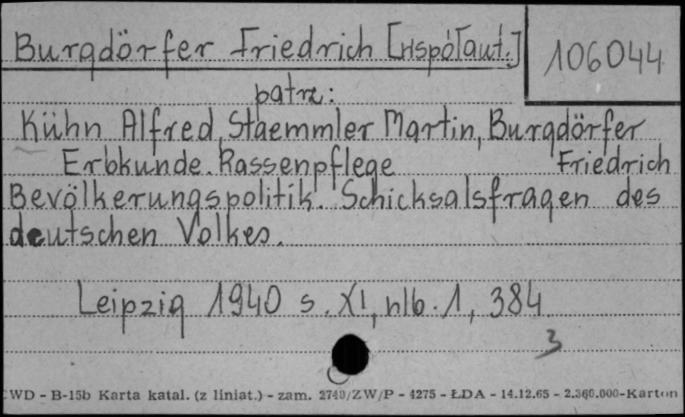 Burgdörfer Friedrich [Współaut.]
106044
patrz:
Kühn Alfred, Staemmler Martin, Burgdörfer
Erbkunde. Rassenpflege Friedrich
Bevölkerungspolitik. Schicksalsfragen des
deutschen Volkes.
Leipzig 1940 s. XI, nlb. 1, 384
3
WD - B-15b Karta katal. (z liniat.) - zam. 2740/ZW/P - 4275 - ŁDA - 14.12.65 - 2.360.000-Karton